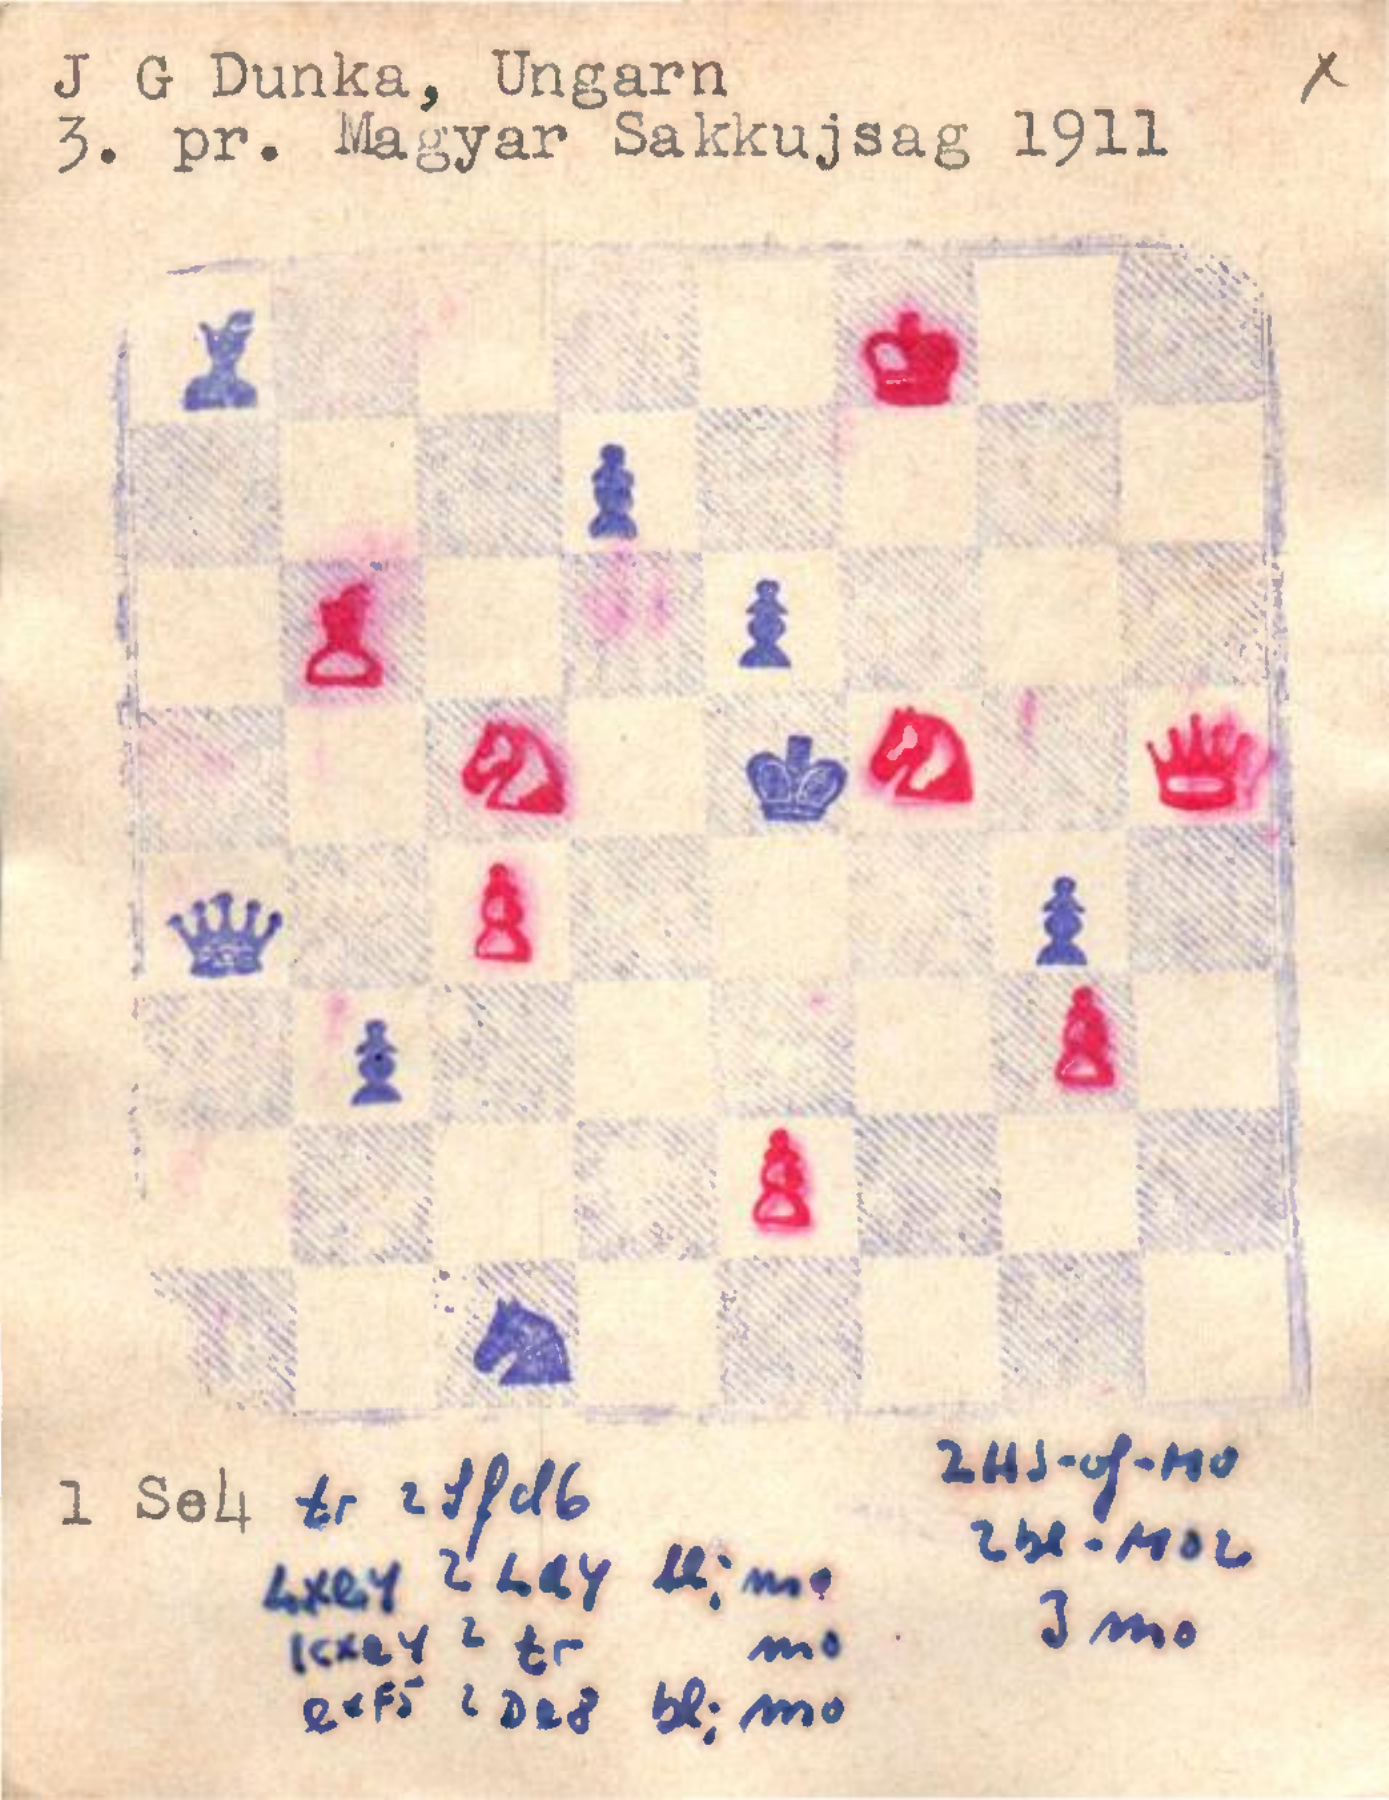 J G Dunka, Ungarn x
3. pr. Magyar Sakkujsag 1911
1 Se4 tr 2 Sfd6
Lxe4 2 Ld4 bl; mo
Kxe4 2 tr mo
exf5 2 De8 bl; mo
2 bl - MO2
3 mo